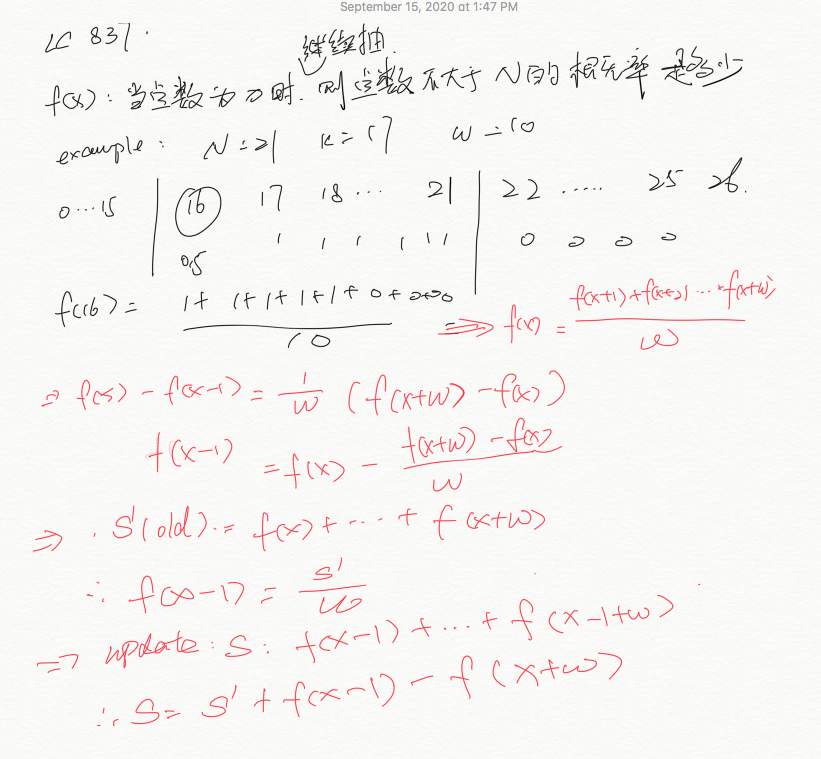 September 15, 2020 at 1:47 PM
LC 837.
继续抽.
f(x): 当总数为 x 时, 则总数不大于 N 的概率是多少
example: N=21 K=17 W=10
0...15 | 16 17 18 ... 21 | 22 ..... 25 26.
0.5 1 1 1 1 1 1 0 0 0 0
f(16) = (1+1+1+1+1+0+0+0+0)/10 ⇒ f(x) = (f(x+1)+f(x+2)...+f(x+w))/W
⇒ f(x) - f(x-1) = 1/W (f(x+w) - f(x))
f(x-1) = f(x) - (f(x+w) - f(x))/W
⇒ . S'(old). = f(x) + ... + f(x+w)
∴ f(x-1) = S'/W
⇒ update: S: f(x-1) + ... + f(x-1+w)
∴ S = S' + f(x-1) - f(x+w)